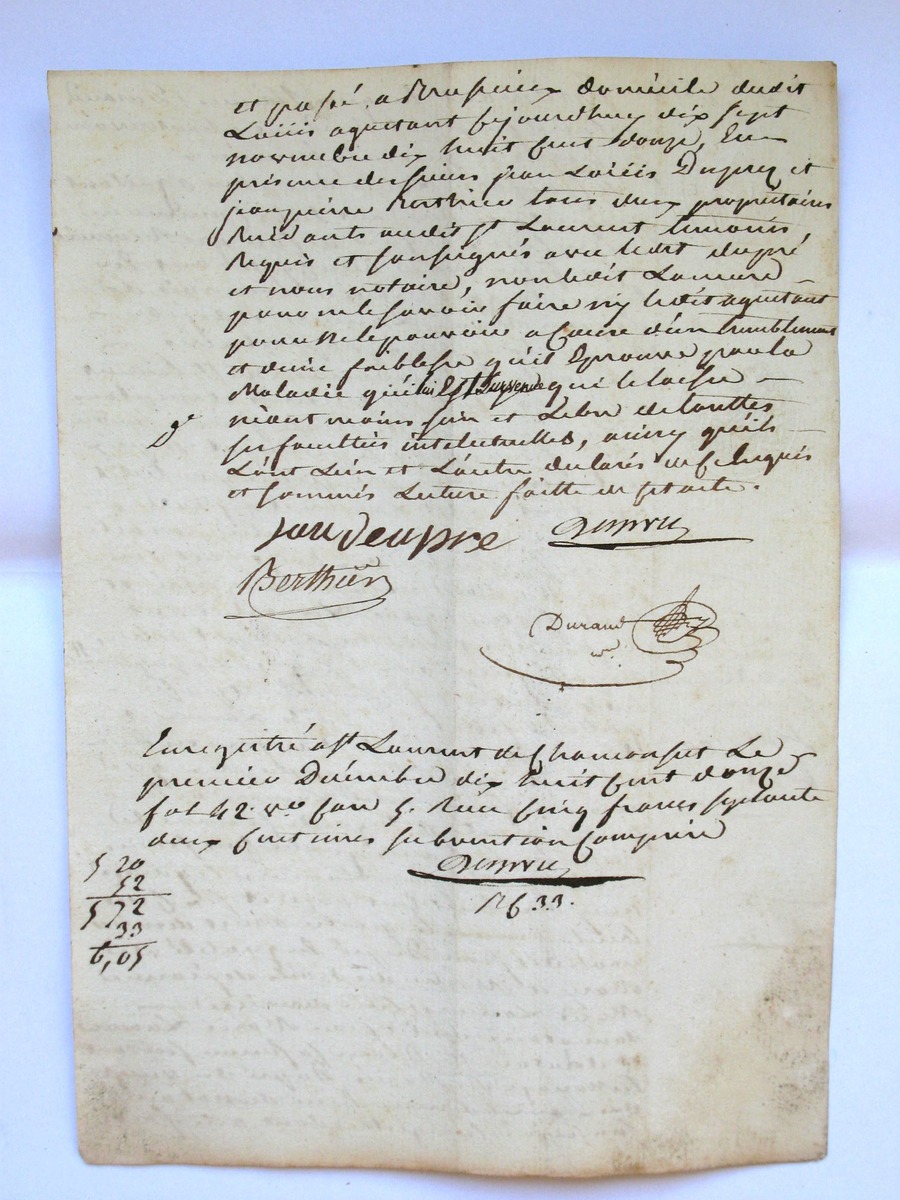 et passé a domicile dudit
Louis aquetant cejourdhuy dix sept
novembre dix huit cent douze, En
présence des sieurs jean Louis Duprez et
jean pierre Berthier tous deux propriétaires
audit St Laurent témoins
Requis et soussignés avec ledit dupré
et nous notaire, non ledit
pour ne le savoir faire ny ledit aquetant
pour ne le pouvoir a Cause d'un tremblement
et d'une faiblesse qu'il Eprouve par la
Maladie qui Est survenue qui le laisse
néant moins sain et Libre de touttes
ses facultés intelectuelles, ainsy qu'ils
L'ont L'un et L'autre declarés de ce Requis
et sommés Lecture faitte de cet acte.
jean deupre
Berthier
Durand
Enregistré a St Laurent de Chamousset Le
premier Décembre dix huit cent douze
fol 42 vo Case 5. Recu Cinq francs septante
deux Centimes subvention Comprise
5 20
52
5 72
33
6,05
33.